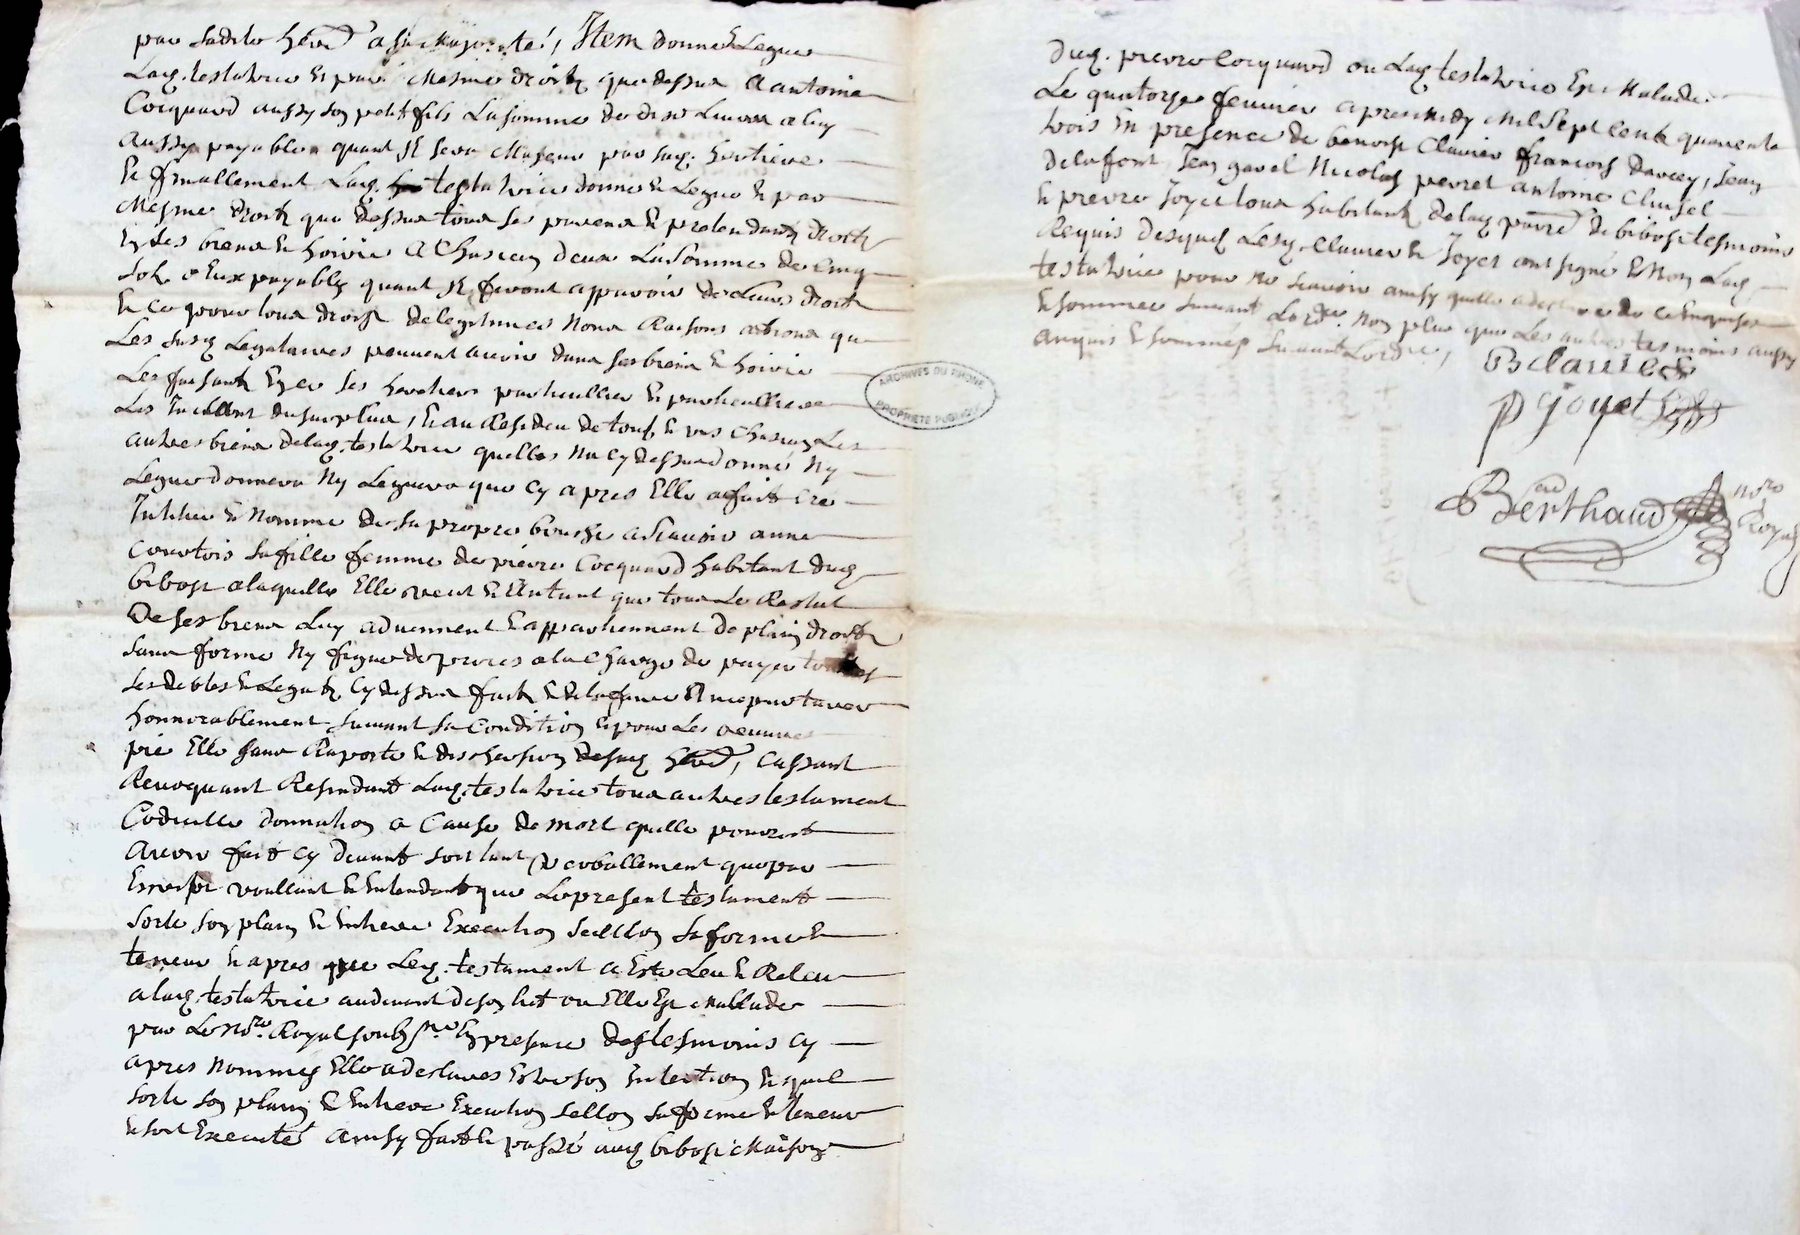 par sadite herd. a sa majorité, Item donne & Legue
Laq. testatrice & par mesme droitz que dessus a antoine
Cocquard aussy son petit fils La somme de dise Livres a luy
aussy payable quant Il sera majeur par saq. heritiere
& finallement Laq. testatrice donne & Legue & par
mesme droitz que dessus tous ses parens & pretendants droitz
En ses biens & hoirie a Chascun deux La somme de cinq
solz a Eux payables quant Ilz feront apparoir de Leurs droitz
& ce pour tous droitz de legitimes Noms Raisons actions que
Les susq. Legataires peuvent avoir dans ses biens & hoirie
Les faisant En ce ses heretiers particulliers & particullieres
Les du surplus, & au Residu de tous & uns chascuns Les
autres biens delaq. testatrice quelle na cy dessus donné Ny
Legue donnera Ny Leguera que cy apres Elle a fait cree
Institue & Nomme de sa propre bouche a scavoir anne
courtois sa fille femme de pierre Cocquard habitant dudq.
bibost a laquelle Elle veut & Entent que tous Le Restat
De ses biens Luy adviennent & appartiennent de plain droitz
sans forme Ny figure de proces a la charge de payer touttes
ses debtes & Legatz Cy dessus faitz & de la faire
honnorablement suivant sa condition & pour Les oeuvres
pie Elle sans Raporte & discretion desaq. herd., Cassant
Revoquant Resindant Laq. testatrice tous autres testament
Codicille donnation a Cause de mort quelle pourroit
avoir fait cy devant soit tant verballement que par
Escript voullant & Entendant que Le present testament
sorte son plain & Entiere Execution sellon sa forme &
teneur & apres que Leq. testament a Esté Leu & Releu
a laq. testatrice au devant de son lit ou Elle Est mallade
par Le Nore. Royal soubsné. En presence des tesmoins cy
apres Nommes Elle a desclares Estre son Intention & quil
sorte son plain & Entiere Execution sellon sa forme & teneur
& soit Executé ainsy fait & passé audq. bibost maison
dudq. pierre Cocquard ou Laq. testatrice Est malade
Le quatorze fevrier apres midy mil sept cent quarente
trois En presence de benoist Clavier francois darcey, Jean
delafont Jean gavel Nicolas peyret antoine Clusel
& pierre Joyet tous habitants delaq. parre. de bibost tesmoins
Requis Desquels Lesq. Clavier & Joyet ont signé & Non Laq.
testatrice pour ne scavoir ainsy quelle a declare de ce Enquise
& sommee suivant Lordre. Non plus que Les autres tesmoins aussy
anquis & sommés suivant Lordre,
B Clavier
p joyet
Berthaud nore Royal
ARCHIVES DU RHONE
PROPRIETE PUBLIQUE